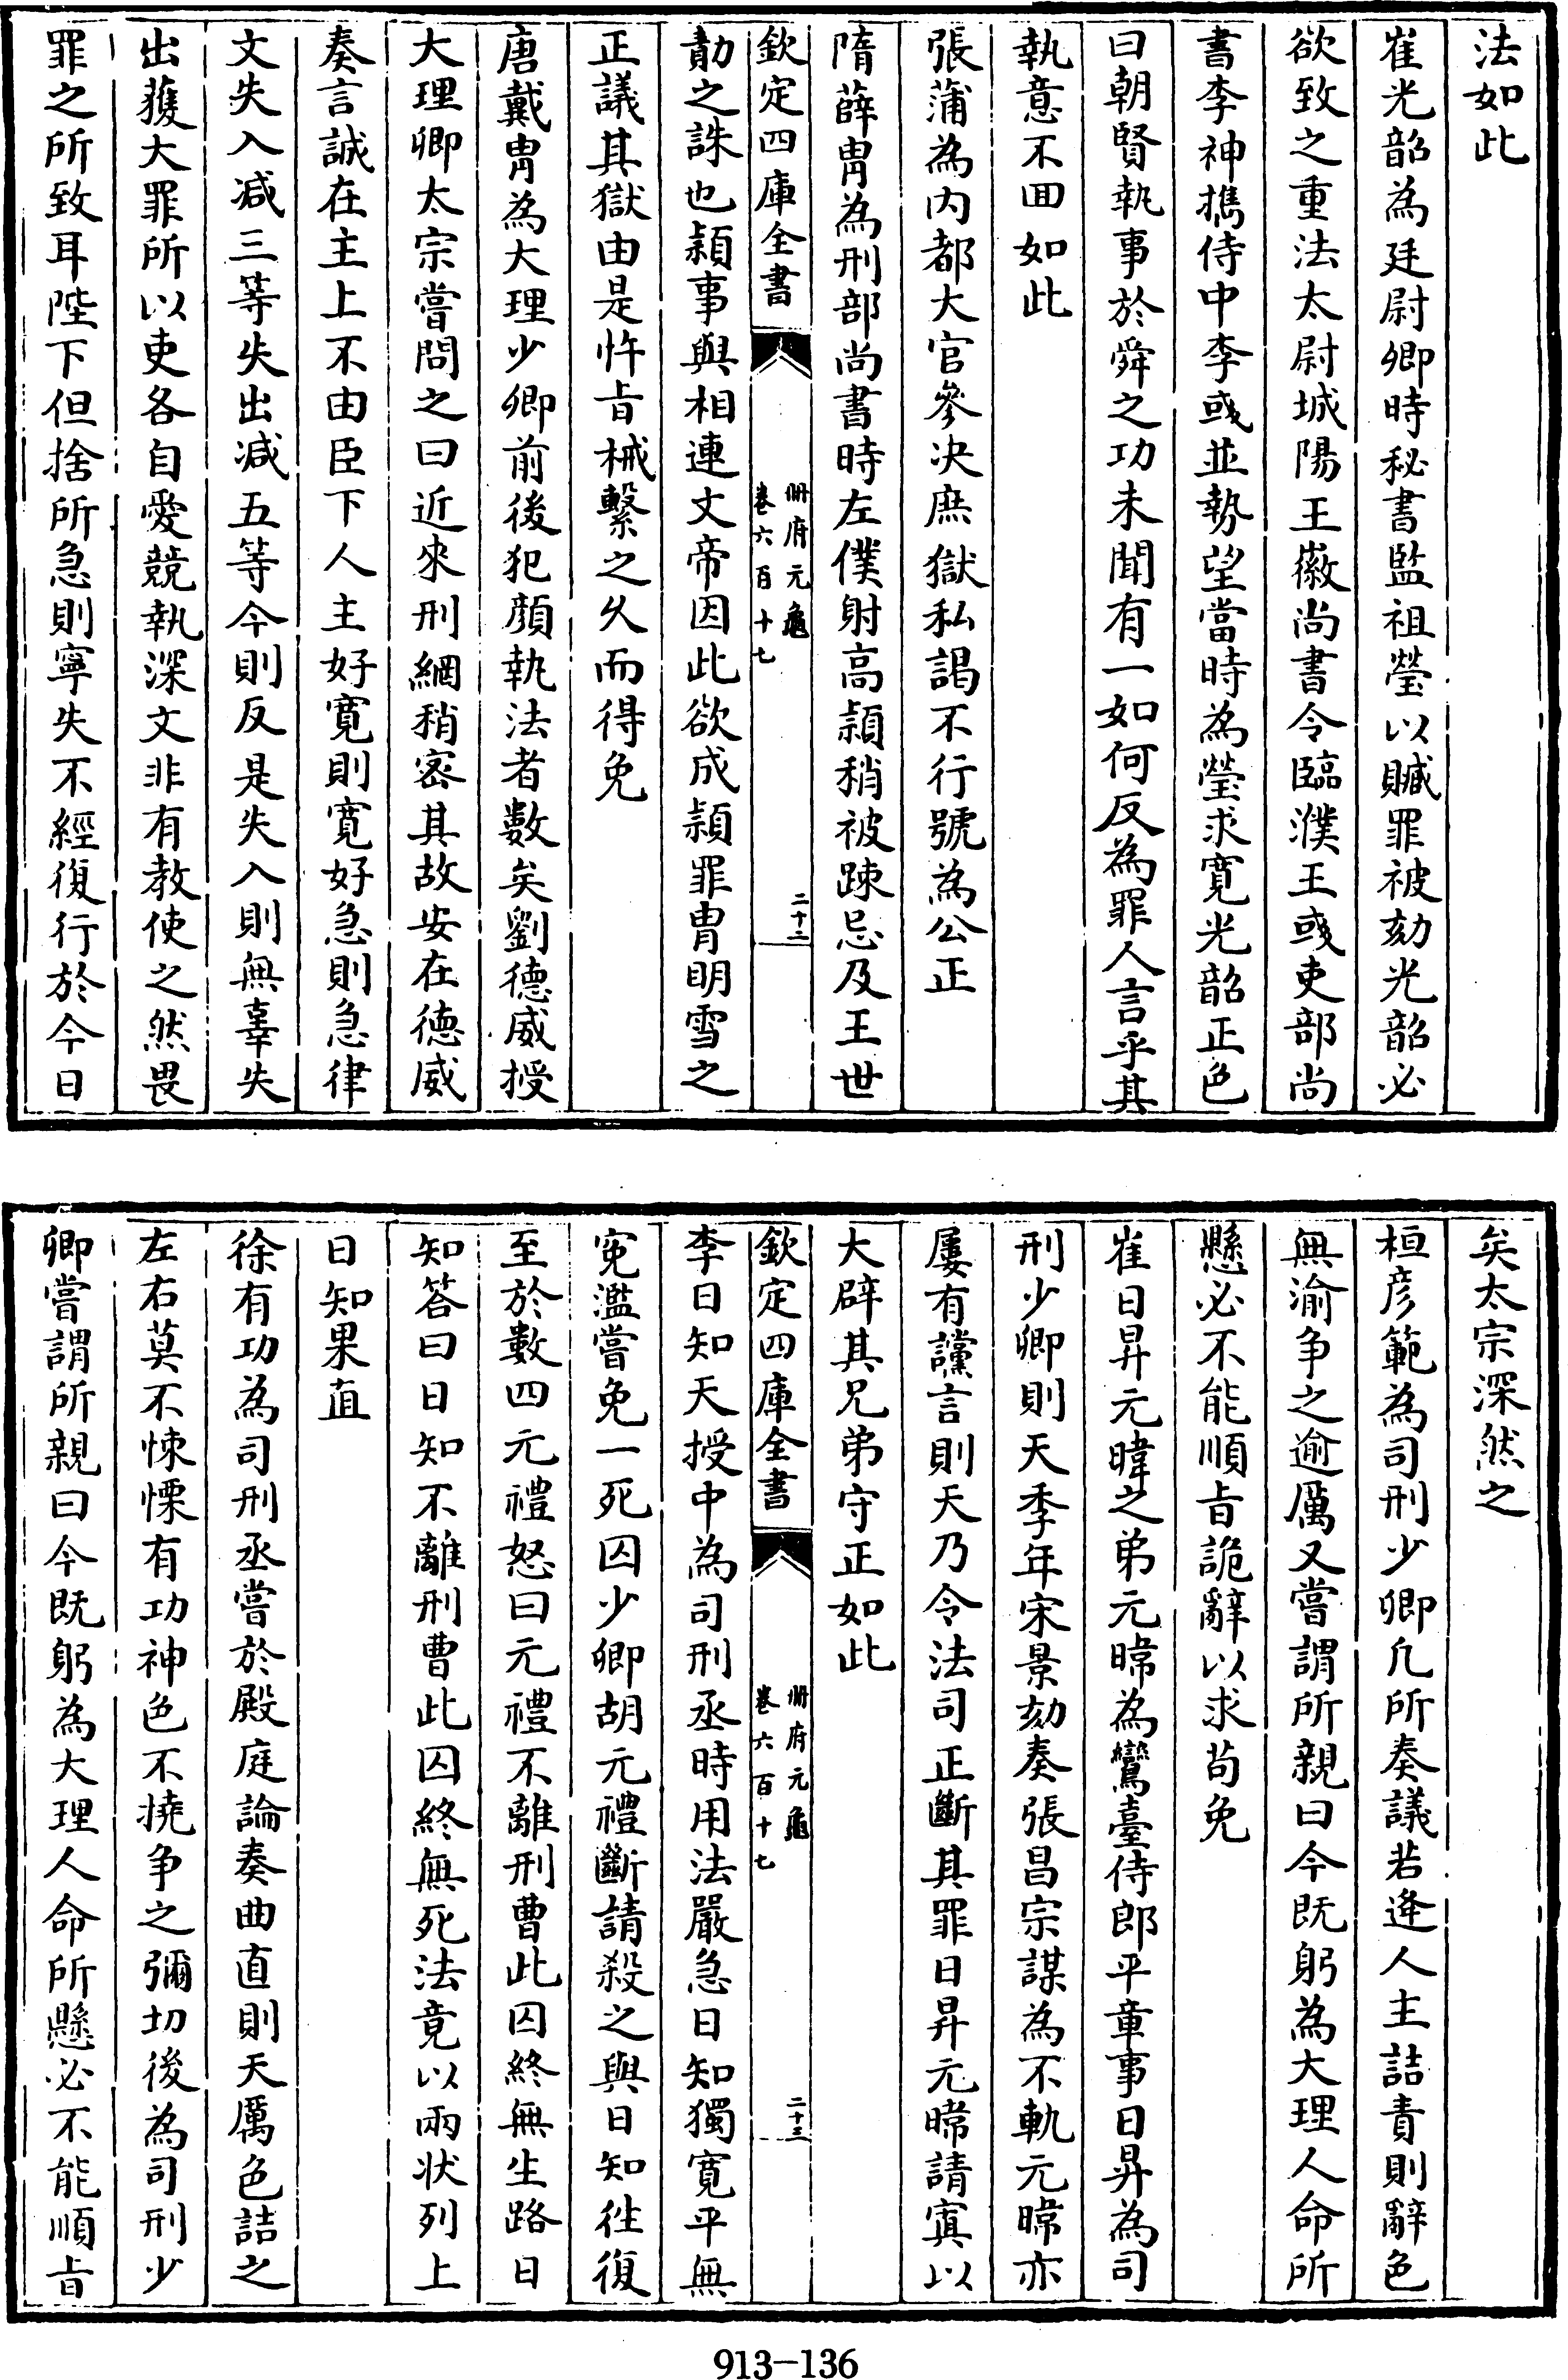 法如此
崔光韶為廷尉卿時秘書監祖瑩以贓罪被劾光韶必
欲致之重法太尉城陽王徽尚書令臨濮王彧吏部尚
書李神擕侍中李彧並勢望當時為瑩求寛光韶正色
曰朝賢執事於舜之功未聞有一如何反為罪人言乎其
執意不回如此
張蒲為内都大官參决庶獄私謁不行號為公正
隋薛胄為刑部尚書時左僕射高熲稍被踈忌及王世
欽定四庫全書
冊府元龜
卷六百十七
二十二
勣之誅也熲事與相連文帝因此欲成熲罪胄明雪之
正議其獄由是忤旨械繫之久而得免
唐戴胄為大理少卿前後犯顔執法者數矣劉德威授
大理卿太宗嘗問之曰近來刑網稍密其故安在德威
奏言誠在主上不由臣下人主好寛則寛好急則急律
文失入减三等失出减五等今則反是失入則無辜失
出獲大罪所以吏各自愛競執深文非有教使之然畏
罪之所致耳陛下但捨所急則寧失不經復行於今日
矣太宗深然之
桓彦範為司刑少卿凡所奏議若逄人主詰責則辭色
無渝争之逾厲又嘗謂所親曰今既躬為大理人命所
懸必不能順旨詭辭以求苟免
崔日昇元暐之弟元暐為鸞臺侍郎平章事日昇為司
刑少卿則天季年宋景劾奏張昌宗謀為不軌元暐亦
屢有讜言則天乃令法司正斷其罪日昇元暐請寘以
大辟其兄弟守正如此
欽定四庫全書
冊府元龜
卷六百十七
二十三
李日知天授中為司刑丞時用法嚴急日知獨寛平無
寃濫嘗免一死囚少卿胡元禮斷請殺之與日知徃復
至於數四元禮怒曰元禮不離刑曹此囚終無生路日
知答曰日知不離刑曹此囚終無死法竟以兩状列上
日知果直
徐有功為司刑丞嘗於殿庭論奏曲直則天厲色詰之
左右莫不悚慄有功神色不撓争之彌切後為司刑少
卿嘗謂所親曰今既躬為大理人命所懸必不能順旨
913-136